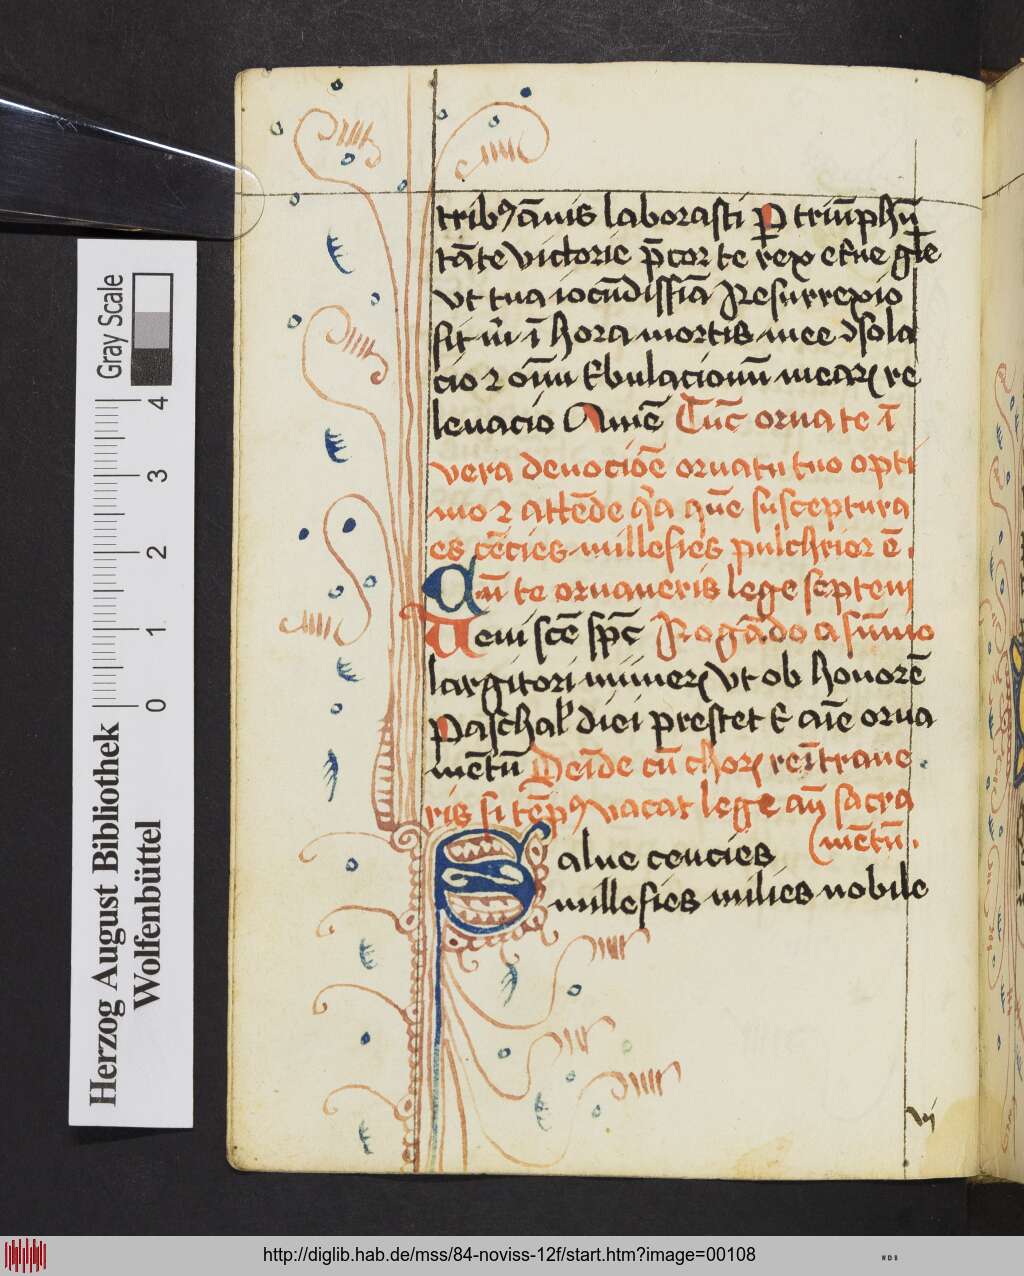 tribꝰ ānis laborasti ꝑ triūphū
tāte victorie p̄cor te rex et̄ne gl̄e
vt tua iocūdissīa Resurrexio
sit m̄ ī hora mortis mee ꝯsola
cio ⁊ oīm tribulacionū mearꝝ re
leuacio Amē Tūc orna te ī
vera deuociōe ornatu tuo opti
mo ⁊ attēde qͣ q̄ susceptura
es cēcies millesies pulchrior ē.
Cū te ornaueris lege septem
Veni scē sp̄c Rogādo a sūmo
largitori munerꝝ vt ob honorē
Paschał diei prestet t̄ aīe orna
mētū Deīde cū chorꝝ reītraue
ris si tēpꝰ vacat lege an̄ sacra
mētū.
Salue cencies
millesies milies nobile
vj
Gray Scale
4
3
2
1
0
Herzog August Bibliothek
Wolfenbüttel
http://diglib.hab.de/mss/84-noviss-12f/start.htm?image=00108
WDB